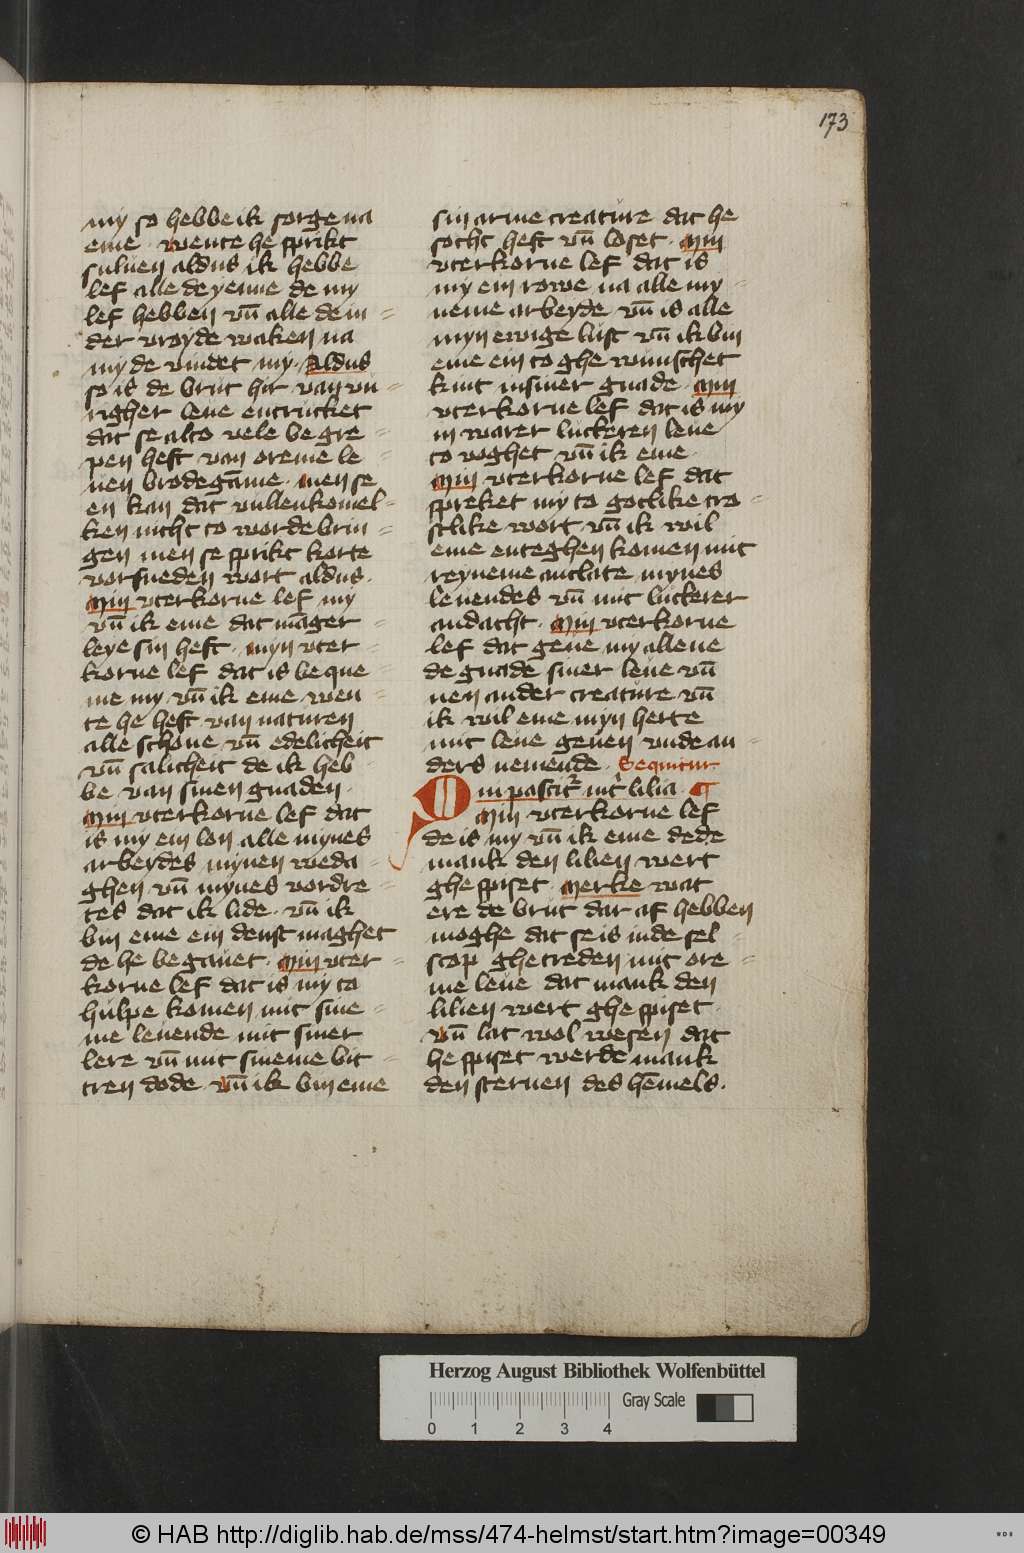 173
my so hebbe ik sorge na
eme · wente he sprikt
suluen aldus ik hebbe
lef alle de yenne de my
lef hebben vn̄ alle de in
der vroyde waken na
my de vindet my · Aldus
so is de brut hir van vu
righer leue entrucket
dat se alto vele be gre
pen heft van oreme le
uen brodegāme · men se
en kan dat vullenkomel
ken nicht to worde brin
gen men se sprikt korte
vorsneden wort aldus ·
Min vterkorne lef my
vn̄ ik eme dat māger
leye sin heft · myn vter
korne lef dat is be que
me my vn̄ ik eme wen
te he heft van naturen
alle schone vn̄ edelicheit
vn̄ salicheit de ik heb
be van sinen gnaden ·
Min vterkorne lef dat
is my ein lon alle mynes
arbeydes mynen weda
ghen vn̄ mynes vordre
tes dat ik lide · vn̄ ik
bin eme ein denst maghet
de he be gauet · Min vter
korne lef dat is my to
hulpe komen mit sine
me leuende mit siner
lere vn̄ mit sineme bit
tren dode · vn̄ ik bin eme
sin arme creature dat he
socht heft vn̄ loset · Min
vterkorne lef dat is
my ein rowe na alle my
neme arbeyde vn̄ is alle
myn ewige lust vn̄ ik bin
eme ein to ghe wunschet
kint in siner gnade · Min
vterkorne lef dat is my
in warer luckeren leue
to voghet vn̄ ik eme ·
Min vterkorne lef dat
spreket my to gotlike tro
stlike wort · vn̄ ik wil
eme enteghen komen mit
reyneme anclate mynes
leuendes vn̄ mit luckerer
andacht · Min vterkorne
lef dat geue my allene
de gnade siner leue vn̄
nen ander creature vn̄
ik wil eme myn herte
mit leue geuen vnde an
ders nemende · Sequitur
Qui pascit᷑ int᷑ lilia · ¶
Min vterkorne lef
de is my vn̄ ik eme de de
mank den lilien wert
ghe spiset · Merke wat
ere de brut dar af hebben
moghe dat se is in de sel
scop ghetreden mit ore
me leue dat mank den
lilien wert ghe spiset ·
vn̄ lat wol wesen dat
he spiset werde mank
den sternen des hēmels ·
Herzog August Bibliothek Wolfenbüttel
Gray Scale
0 1 2 3 4
© HAB http://diglib.hab.de/mss/474-helmst/start.htm?image=00349